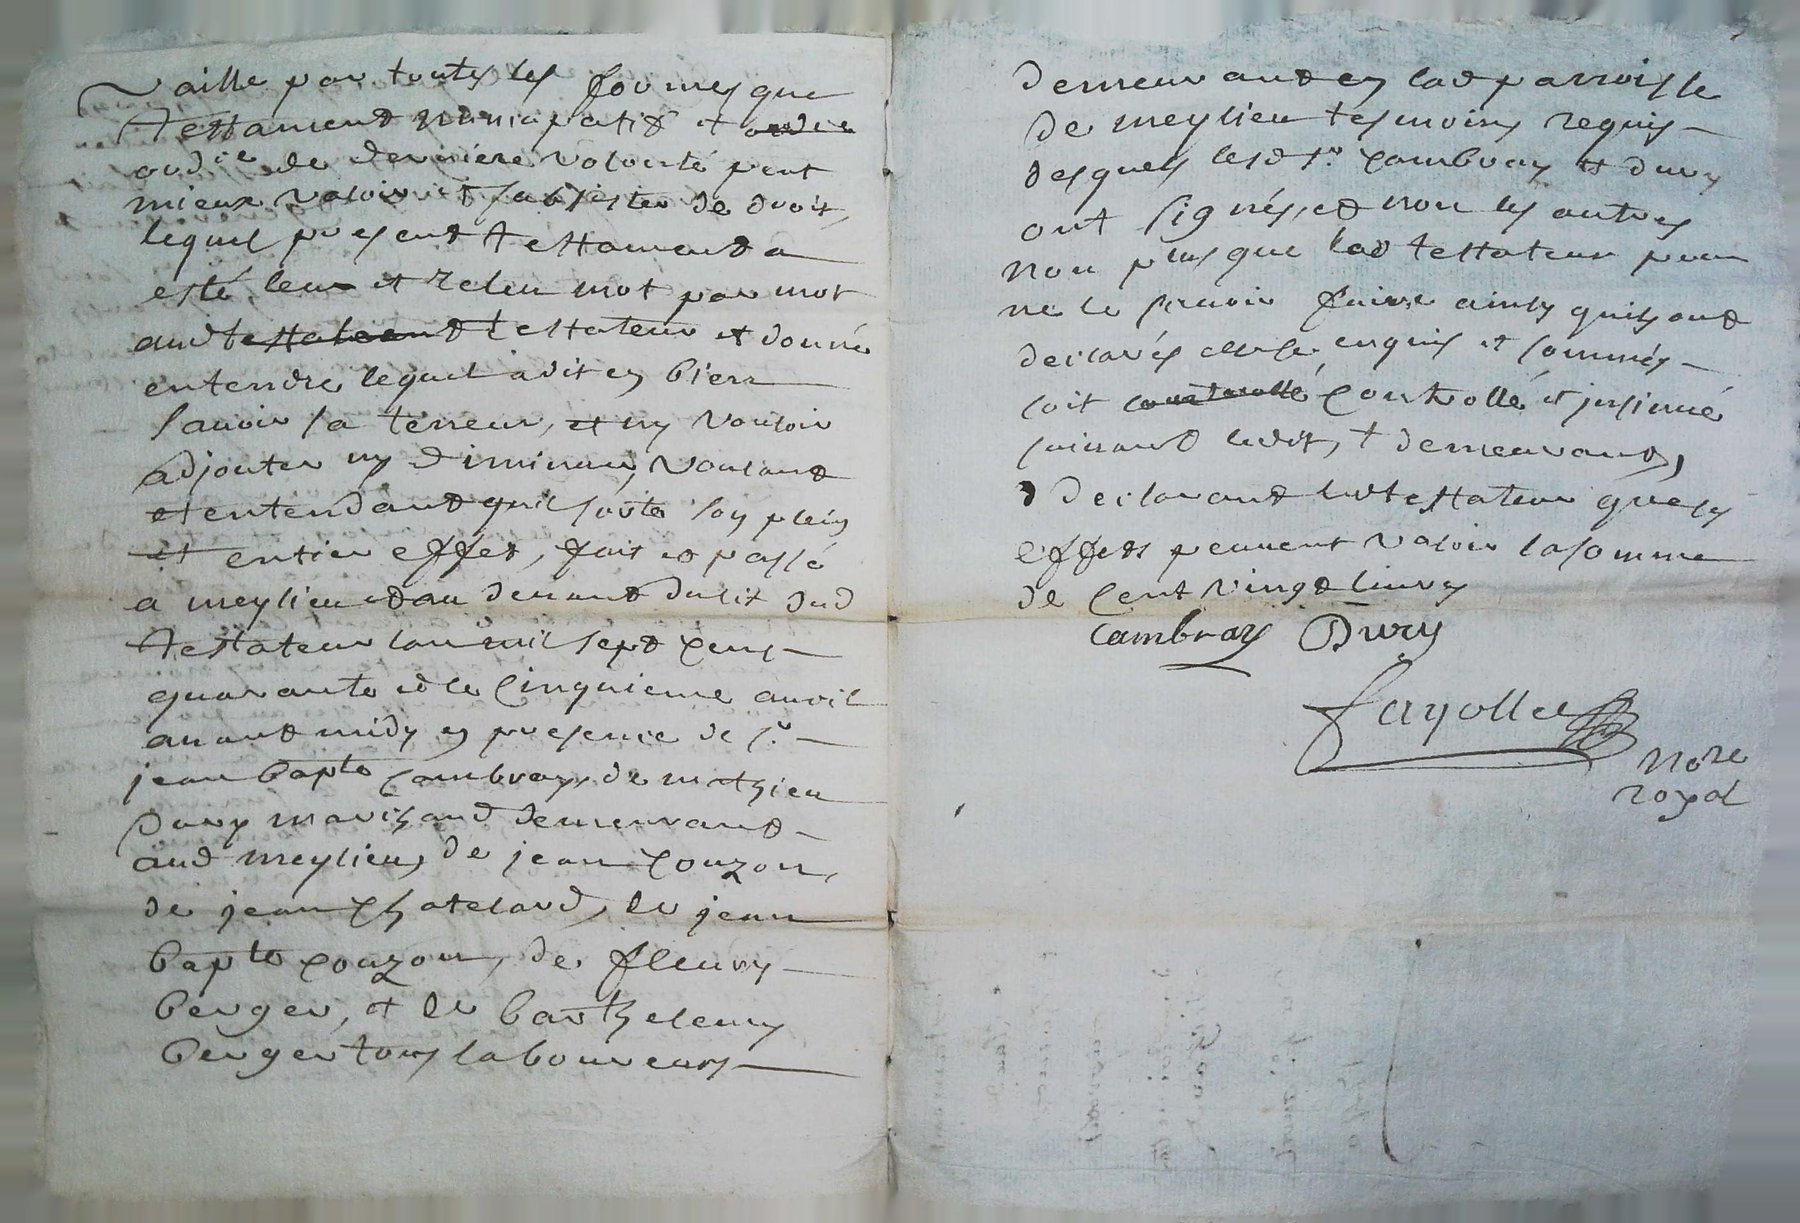 vaille par toutes les formes que
testament nuncupatif et
ord.re de derniere volonté peut
mieux valoir et subsister de droit,
lequel present testament a
esté leu et releu mot par mot
aud testateur et donné
entendre lequel a dit en bien
sauoir la teneur, et ny vouloir
adjouter ny diminuer, voulant
et entendant quil sorte son plein
et entier effet, fait et passé
a meylieu et au deuant dudit dud
testateur lan mil sept cens
quarante et le cinquieme auril
auant midy en presence de s.r
jean bap.te Cambray, de mathieu
Dury marchand demeurant
aud meylieu, de jean couzon,
de jean chatelard, de jean
bap.te couzon, de fleury
berger, et de barthelemy
berger tous laboureurs
demeurant en lad parroisse
de meylieu tesmoins requis
desquels lesd s.rs Cambray et dury
ont signés, et non les autres
non plus que led testateur pour
ne le scauoir faire ainsy quils ont
declarés enquis et sommés
soit controllé controllé et insinué
suiuant ledit, et demeurant,
declarant led testateur que ses
effets peuuent valoir la somme
de cent vingt liures
Cambray Dury
fayolle
No.re
royal